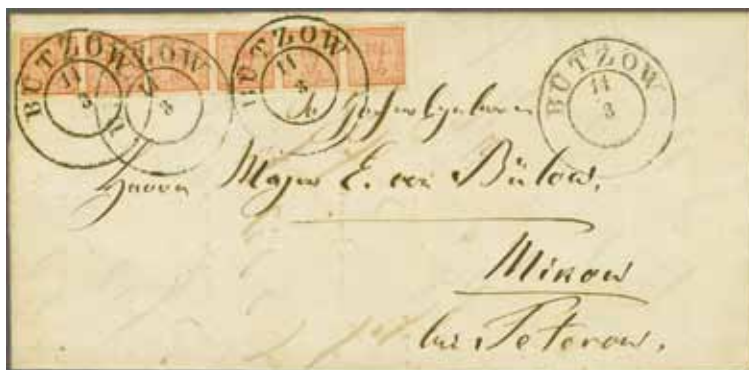 BÜTZOW
11
3
BÜTZOW
11
3
BÜTZOW
11
3
BÜTZOW
11
3
Herrn Major E. von Bülow,
Mikow
bei Teterow.